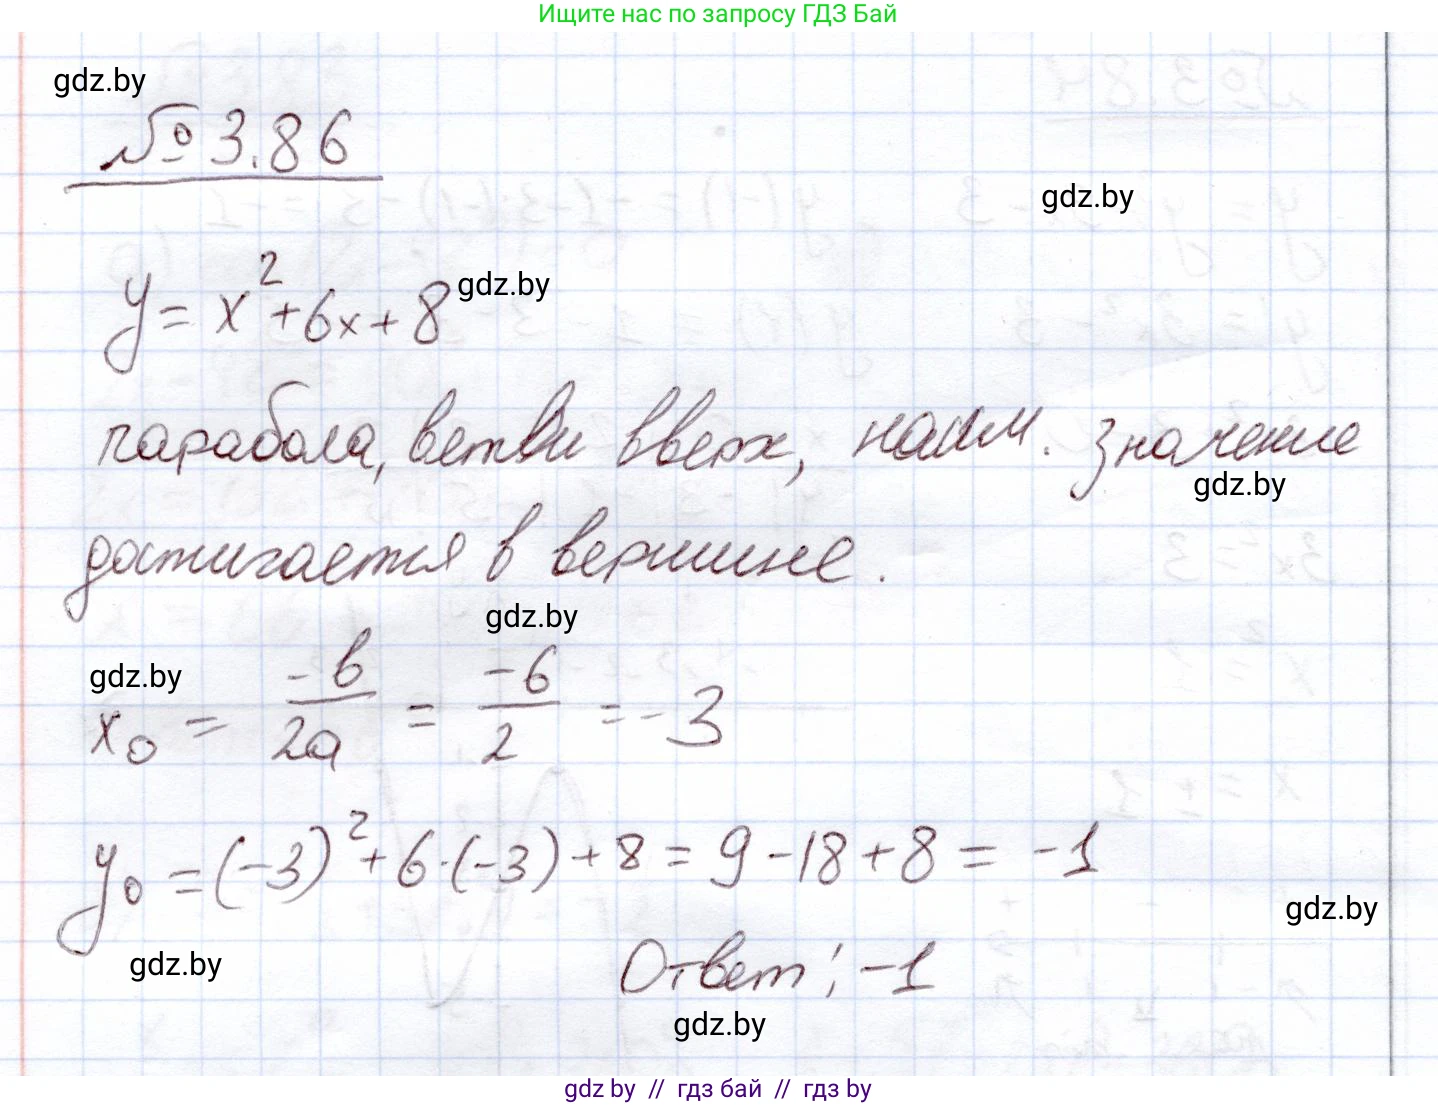 Ищите нас по запросу ГДЗ Бай
gdz.by
№ 3.86
gdz.by
y = x² + 6x + 8
gdz.by
парабола, ветви вверх, наим. значение
gdz.by
достигается в вершине.
gdz.by
gdz.by
x₀ = -b/2a = -6/2 = -3
y₀ = (-3)² + 6·(-3) + 8 = 9 - 18 + 8 = -1
gdz.by
gdz.by
Ответ: -1
gdz.by
gdz by // гдз бай // гдз by